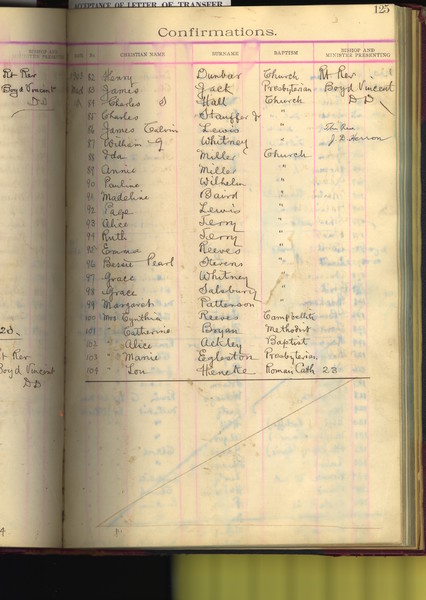 ACCEPTANCE OF LETTER OF TRANSFER
125
Confirmations.
No. CHRISTIAN NAME SURNAME BAPTISM BISHOP AND MINISTER PRESENTING
82 Henry Dunbar Church Rt Rev
83 James Jack Presbyterian Boyd Vincent
84 Charles S Hall Church DD
85 Charles Stauffer Jr "
86 James Calvin Lewis "
87 Wilhelm G Whitney " J D Herron
88 Ida Miller Church
89 Annie Miller "
90 Pauline Wilhelm "
91 Madeline Baird "
92 Page Lewis "
93 Alice Terry "
94 Ruth Terry "
95 Emma Reeves "
96 Bessie Pearl Stevens "
97 Grace Whitney "
98 Grace Salsbury "
99 Margaret Patterson "
100 Mrs Cynthia Reeves Campbellite
101 " Catherine Bryan Methodist
102 " Alice Ackley Baptist
103 " Mamie Egleston Presbyterian
104 " Lou Heneke Roman Cath 23
BISHOP AND
MINISTER PRESENTING
Rt Rev
Boyd Vincent
DD
23.
Rt Rev
Boyd Vincent
DD